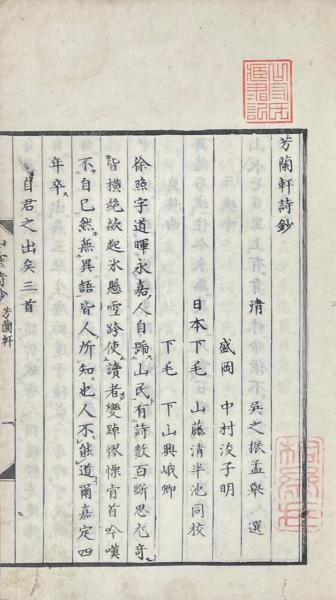 芳蘭軒詩鈔
清 吳之振孟舉 選
盛岡 中村浚子明
日本下毛 山藤清半池同校
下毛 下山興峨卿
徐照字道暉永嘉人自號山民有詩數百斷思尤奇
皆橫絶欻起冰懸雪跨使讀者變踔憀慄肯首吟嘆
不自已然無異語皆人所知也人不能道爾嘉定四
年卒
自君之出矣三首
芳蘭軒